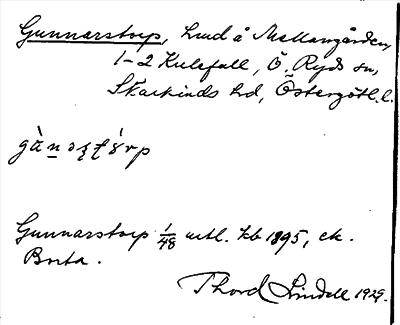 Gunnarstorp, lund å Mellangården,
1-2 Kulefall, Ö. Ryds sn,
Skärkinds hd, Östergötl. l.
Gunnarstorp 1/48 mtl. kb 1895, ek.
Borta.
Thord Lindell 1929.